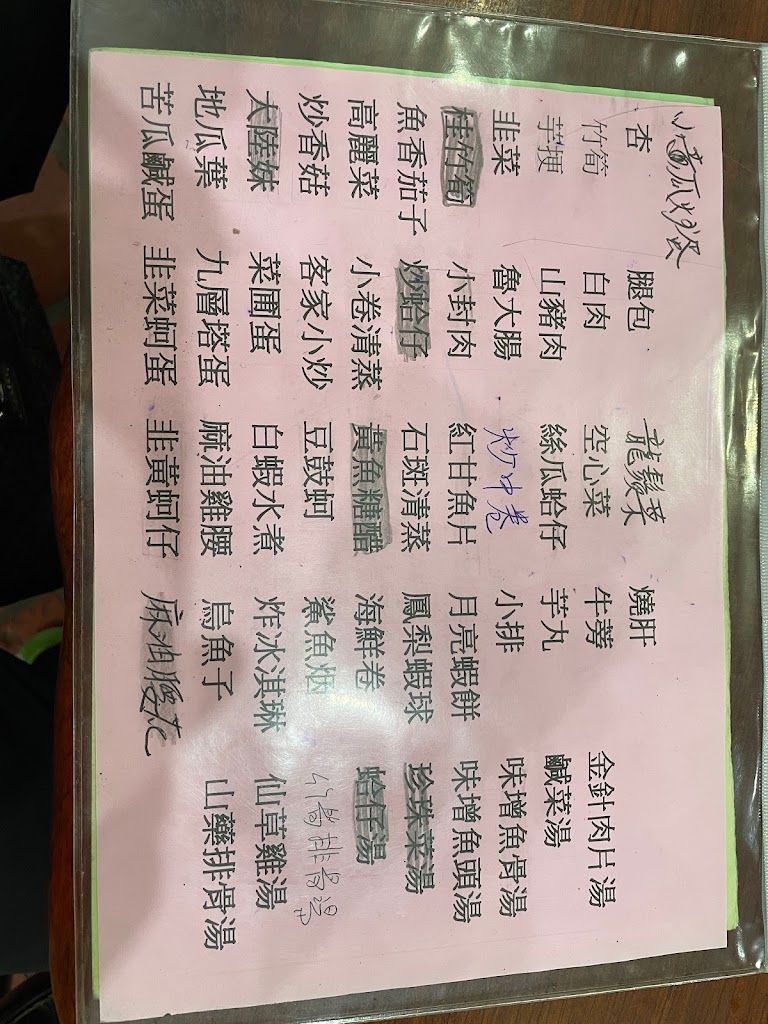 小黃瓜炒蛋
杏 腿包 龍鬚菜 燒肝
竹筍 白肉 空心菜 牛蒡 金針肉片湯
芋梗 山豬肉 絲瓜蛤仔 芋丸 鹹菜湯
韭菜 魯大腸 炒中卷 小排 味增魚骨湯
桂竹筍 小封肉 紅甘魚片 月亮蝦餅 味增魚頭湯
魚香茄子 炒蛤仔 石斑清蒸 鳳梨蝦球 珍珠菜湯
高麗菜 小卷清蒸 黃魚糖醋 海鮮卷 蛤仔湯
炒香菇 客家小炒 豆鼓蚵 鯊魚烟 竹筍排骨湯
大陸妹 菜圃蛋 白蝦水煮 炸冰淇琳 仙草雞湯
地瓜葉 九層塔蛋 麻油雞腰 烏魚子 山藥排骨湯
苦瓜鹹蛋 韭菜蚵蛋 韭黃蚵仔 麻油腰花